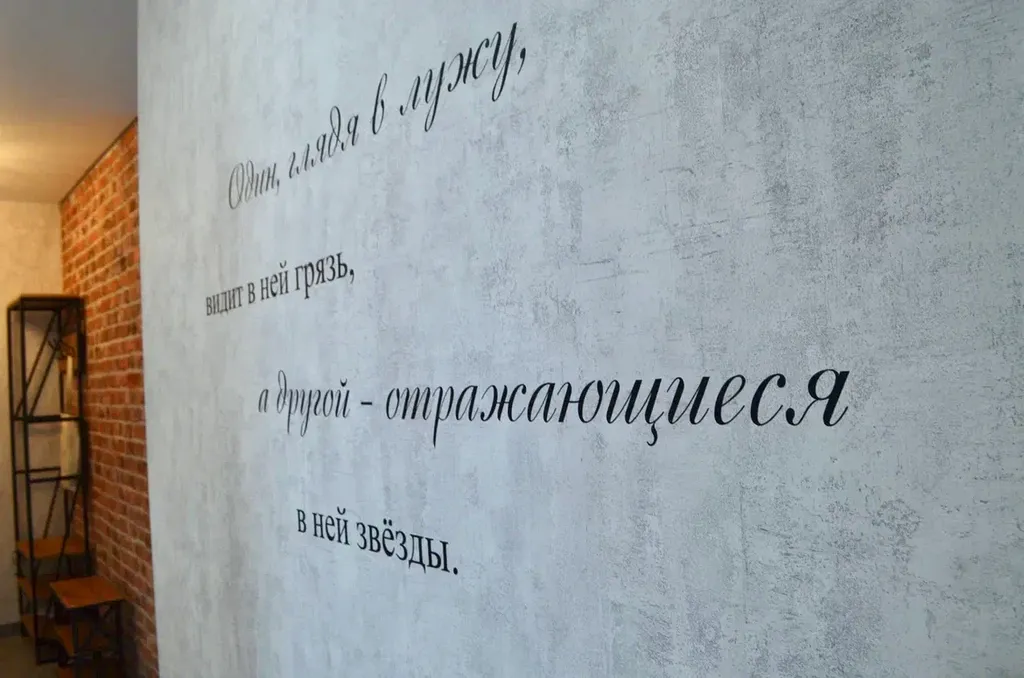 Один, глядя в лужу,
видит в ней грязь,
а другой - отражающиеся
в ней звёзды.